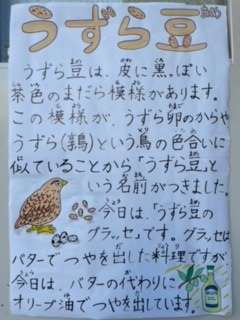 うずら豆
うずら豆は、皮に黒っぽい
茶色のまだら模様があります。
この模様が、うずら卵のからや
うずら(鶉)という鳥の色合いに
似ていることから「うずら豆」と
いう名前がつきました。
今日は、「うずら豆の
グラッセ」です。グラッセは
バターでつやを出した料理ですが
今日は、バターの代わりに
オリーブ油でつやを出しています。